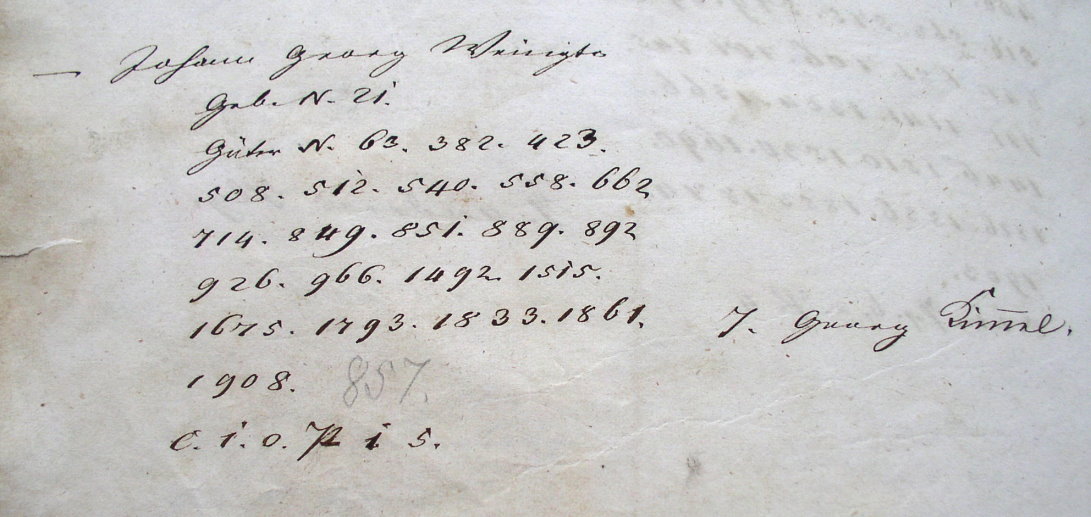 — Johann Georg Weingts
Geb. N. 21.
Güter N. 63. 382. 423.
508. 512. 540. 558. 662
714. 849. 851. 889. 892
926. 966. 1492. 1515.
1675. 1793. 1833. 1861. J. Georg Kim̅el.
1908. 857.
C. i. o. i 5.